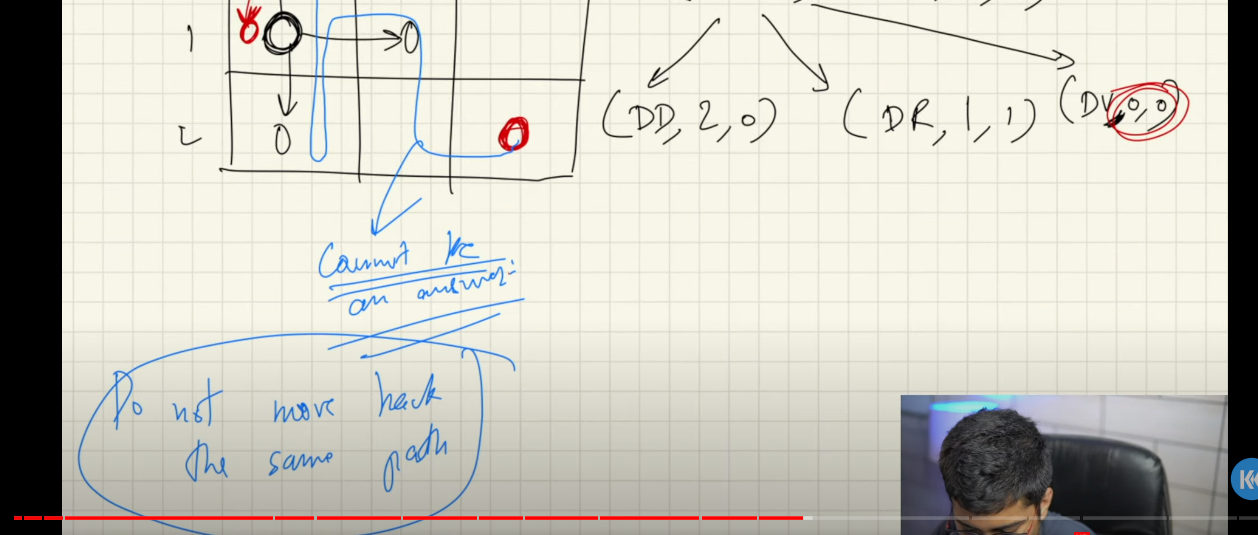 1 0 0
(DD, 2, 0) (DR, 1, 1) (DV, 0, 0)
0 0
Cannot be
an answer
Do not move back
the same path
K